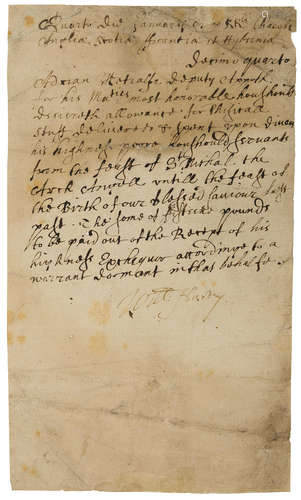 Quarto die Januarii RRs Charoli
Anglie Scotie Francia et Hybernia
decimo quarto
Adrian Metcalfe deputy
for his Maties most honorable houshould
desireth allowance for
stuff delivered & spent upon
his highnes poore houshould servants
from the feast of St Mihal the
Arck Angell untill the feast of
the Birth of our blessed saviour last
past. The some of pounds
to be paid out of the Receyt of his
highness Exchequor accordinge to a
warrant dormant in that behalfe